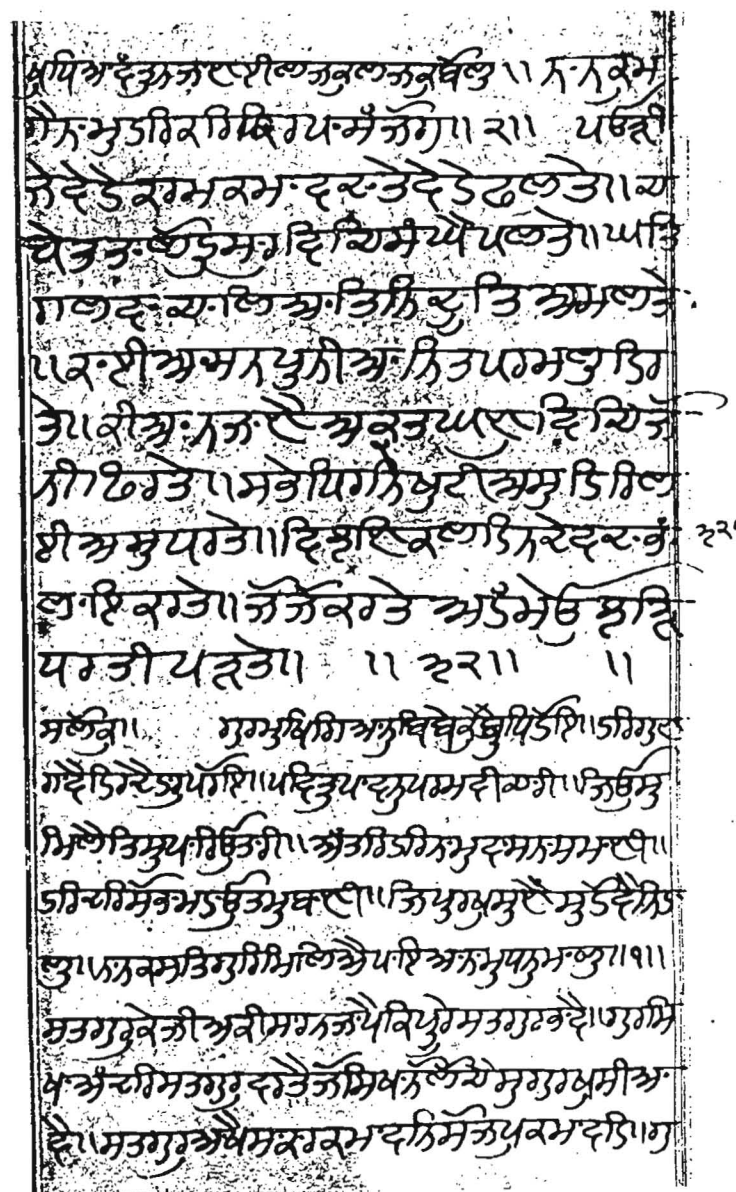 ਖੁਧਿਆਵੰਤੁ ਨ ਜਾਣਈ ਲਾਜ ਕੁਲਾਜ ਕੁਬੋਲੁ॥ ਨਾਨਕੁ ਮਾ
ਗੈ ਨਾਮੁ ਹਰਿ ਕਰਿ ਕਿਰਪਾ ਸੰਜੋਗੁ॥੨॥ ਪਉੜੀ
ਜੇਵੇਹੇ ਕਰਮ ਕਮਾਵਦਾ ਤੇਵੇਹੇ ਫਲਤੇ॥ ਚ
ਬੇ ਤਤਾ ਲੋਹ ਸਾਰ ਵਿਚਿ ਸੰਘੈ ਪਲਤੇ॥ ਘਤਿ
ਗਲਾਵਾ ਚਾਲਿਆ ਤਿਨਿ ਦੂਤਿ ਅਮਲ ਤੇ
॥ ਕਾਈ ਆਸ ਨ ਪੁਨੀਆ ਨਿਤ ਪਰ ਮਲੁ ਹਿਰ
ਤੇ॥ ਕੀਆ ਨ ਜਾਣੈ ਅਕਿਰਤਘਣ ਵਿਚਿ ਜੋ
ਨੀ ਫਿਰਤੇ॥ ਸਭੇ ਧਿਰਾ ਨਿਖੁਟੀਅਸੁ ਹਿਰਿ ਲ
ਈਅਸੁ ਧਰ ਤੇ॥ ਵਿਝਣ ਕਲਹ ਨ ਦੇਵਦਾ ਤਾਂ
ਲਾਇਆ ਕਰਤੇ॥ ਜੋ ਜੋ ਕਰਤੇ ਅਹੰਮੇਉ ਝੜਿ
ਧਰਤੀ ਪੜਤੇ॥ ॥੩੨॥ ॥
ਸਲੋਕੁ॥ ਗੁਰਮੁਖਿ ਗਿਆਨੁ ਬਿਬੇਕੁ ਬੁਧਿ ਹੋਇ॥ ਹਰਿ ਗੁਣ
ਗਾਵੈ ਹਿਰਦੈ ਹਾਰੁ ਪਰੋਇ॥ ਪਵਿਤੁ ਪਾਵਨੁ ਪਰਮ ਬੀਚਾਰੀ॥ ਜਿ ਓਸੁ
ਮਿਲੈ ਤਿਸੁ ਪਾਰਿ ਉਤਾਰੀ॥ ਅੰਤਰਿ ਹਰਿ ਨਾਮੁ ਬਾਸਨਾ ਸਮਾਣੀ॥
ਹਰਿ ਦਰਿ ਸੋਭਾ ਮਹਾ ਉਤਮੁ ਬਾਣੀ॥ ਜਿ ਪੁਰਖੁ ਸੁਣੈ ਸੁ ਹੋਵੈ ਨਿਹਾ
ਲੁ॥ ਨਾਨਕ ਸਤਿਗੁਰਿ ਮਿਲਿਐ ਪਾਇਆ ਨਾਮੁ ਧਨੁ ਮਾਲੁ॥੧॥
ਸਤਗੁਰ ਕੇ ਜੀਅ ਕੀ ਸਾਰ ਨ ਜਾਪੈ ਕਿ ਪੂਰੇ ਸਤਗੁਰ ਭਾਵੈ॥ ਗੁਰਸਿ
ਖਾ ਅੰਦਰਿ ਸਤਗੁਰੁ ਵਰਤੈ ਜੋ ਸਿਖਾ ਨੋ ਲੋਚੈ ਸੁ ਗੁਰ ਖੁਸੀ ਆ
ਵੈ॥ ਸਤਗੁਰੁ ਆਖੈ ਸੁ ਕਾਰ ਕਮਾਵਨਿ ਸੁ ਜਪੁ ਕਮਾਵਹਿ॥ ਗੁ